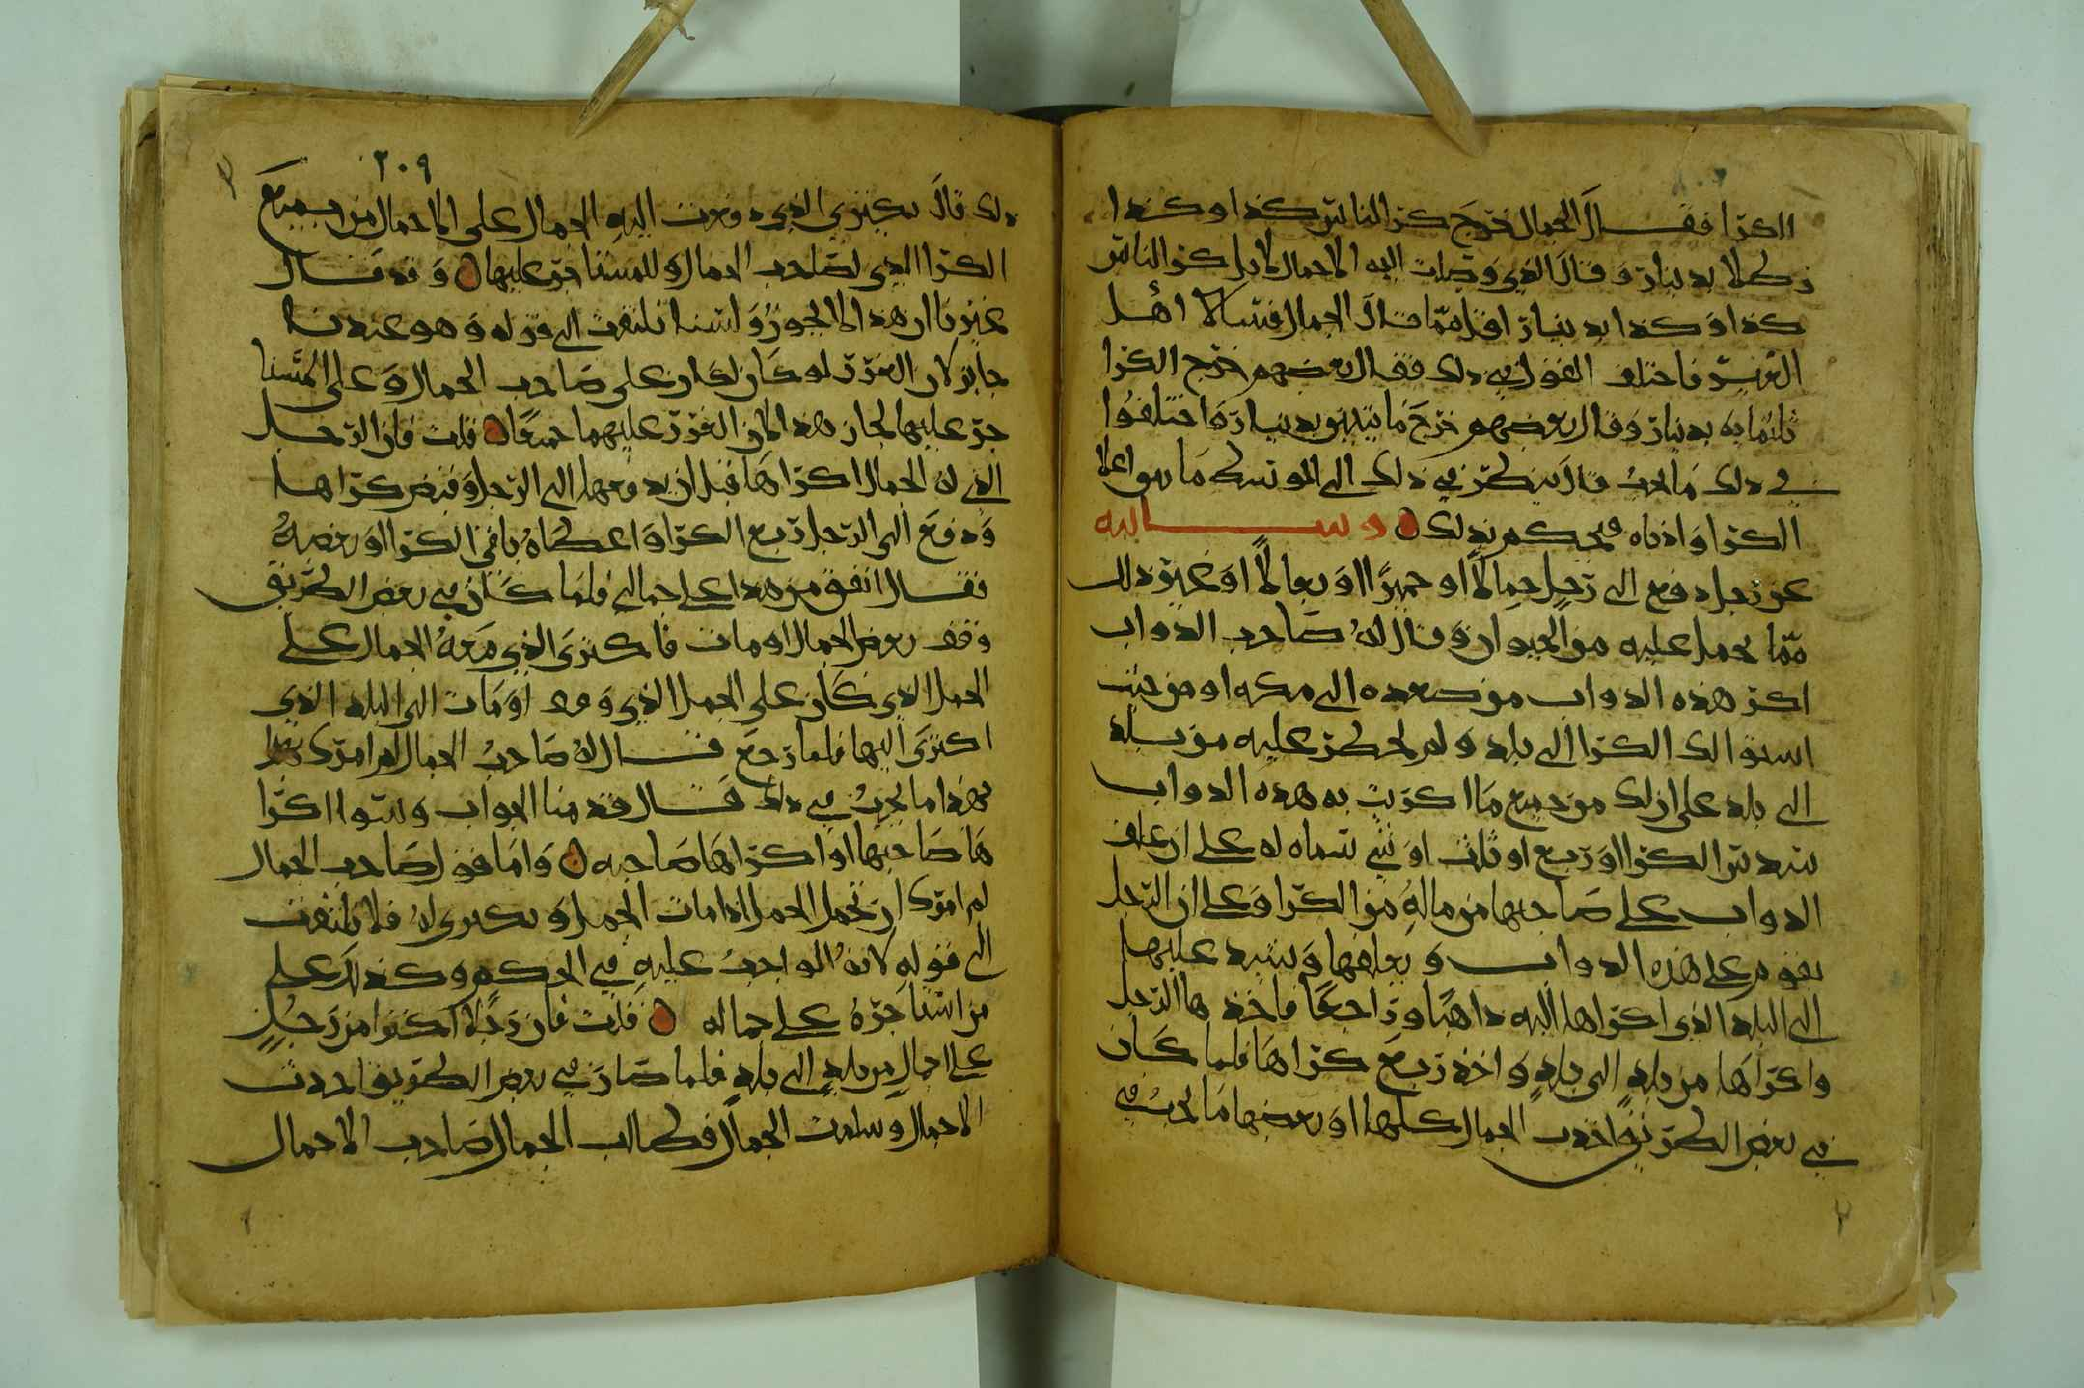 الكرا فقال الجمال خرج كرا الناس كذا وكذا
رطلا بدينار وقال الذي وصلت اليه الاحمال لا بل كرا الناس
كذا وكذا بدينار اقل مما قال الجمال فسالا اهل
فاختلف القول في ذلك فقال بعضهم خرج الكرا
ثلثمايه بدينار وقال بعضهم خرج مايتين بدينار واختلفوا
في ذلك ما يجب قال ينظر في ذلك الى المتوسط ما بين اعلا
الكرا وادناه فيحكم بذلك وسالته
عن رجل دفع الى رجل جمالا او حميرا او بغالا او غير ذلك
مما يحمل عليه من الحيوان وقال له صاحب الدواب
اكر هذه الدواب من صعده الى مكه او من حيث
استوا لك الكرا الى بلد ولم يحظر عليه من بلد
الى بلد على ان لك من جميع ما اكريت به هذه الدواب
سدس الكرا او ربع او ثلث او شي سماه له على ان علف
الدواب على صاحبها من ماله من الكرا وعلى ان الرجل
يقوم على هذه الدواب ويعلفها ويشد عليها
الى البلد الذي اكراها اليه ذاهبا وراجعا فاخذها الرجل
واكراها من بلد الى بلد واخذ ربع كراها فلما كان
في بعض الطريق اخذت الجمال كلها او بعضها ما يجب في
٢٠٩
ذلك قال يكتري الذي دفعت اليه الجمال على الاحمال من جميع
الكرا الذي لصاحب الجمال وللمستاجر عليها وقد قال
غيرنا ان هذا لا يجوز ولسنا نلتفت الى قوله وهو عندنا
جايز لان الغرر لو كان لكان على صاحب الجمال وعلى المستا
جر عليها لجاز هذا لان الغرر عليهما جميعا قلت فان الرجل
الذي له الجمال اكراها قبل ان يدفعها الى الرجل وقبض كراها
ودفع الى الرجل ربع الكرا واعطاه باقي الكرا او بعضه
فقال انفق من هذا على جمالي فلما كان في بعض الطريق
وقف بعض الجمال او مات فاكترى الذي معه الجمال على
الحمل الذي كان على الجمل الذي وقف او مات الى البلد الذي
اكترى اليها فلما رجع قال له صاحب الجمال لم امرك
بهذا ما يجب في ذلك قال قد منا الجواب وسوا اكرا
ها صاحبها او اكراها صاحبه واما قول صاحب الجمال
لم امرك ان تحمل الحمل اذا مات الجمل و له فلا يلتفت
الى قوله لانه الواجب عليه في الحكم وكذلك على
من استاجره على جماله قلت فان رجلا اكترا من رجل
على احمال من بلد الى بلد فلما صار في بعض الطريق اخذت
الاحمال وسلمت الجمال فطالب الجمال صاحب الاحمال